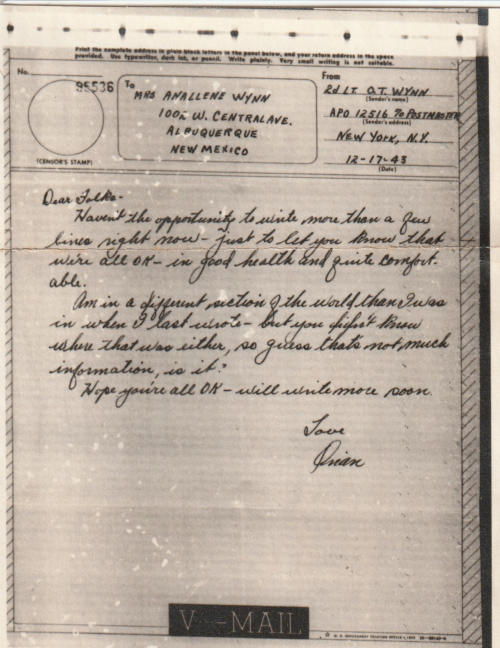 Print the complete address in plain block letters in the panel below, and your return address in the space
provided. Use typewriter, dark ink, or pencil. Write plainly. Very small writing is not suitable.
No.
95536
(CENSOR'S STAMP)
To
MRS ANALLENE WYNN
1002 W. CENTRAL AVE.
ALBUQUERQUE
NEW MEXICO
From
2d LT. O.T. WYNN
(Sender's name)
APO 12516 % POSTMASTER
(Sender's address)
NEW YORK, N.Y.
12-17-43
(Date)
Dear Folks-
Haven't the opportunity to write more than a few
lines right now - just to let you know that
we're all OK - in good health and quite comfort-
able.
Am in a different section of the world than I was
in when I last wrote - but you didn't know
where that was either, so guess that's not much
information, is it?
Hope you're all OK - will write more soon.
Love
Orian
V-MAIL
U. S. GOVERNMENT PRINTING OFFICE